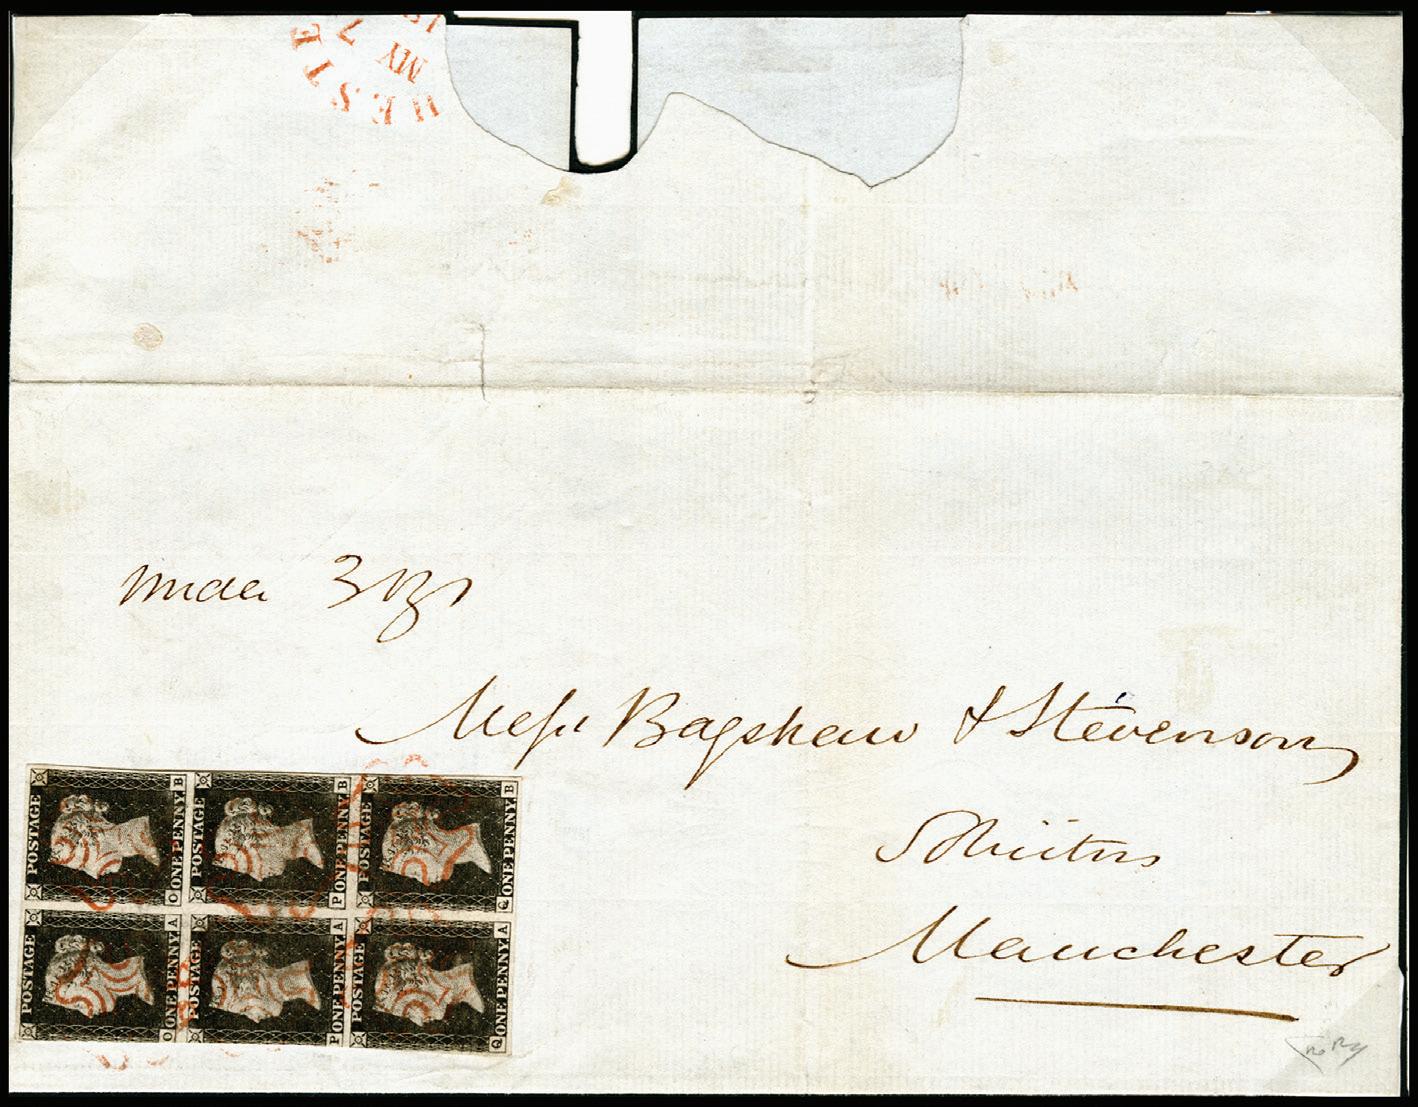 HESTE
MY 7
under 3 ozs
Messrs Bagshaw & Stevenson
Solicitors
Manchester
POSTAGE ONE PENNY O B
POSTAGE ONE PENNY P B
POSTAGE ONE PENNY Q B
POSTAGE ONE PENNY O A
POSTAGE ONE PENNY P A
POSTAGE ONE PENNY Q A